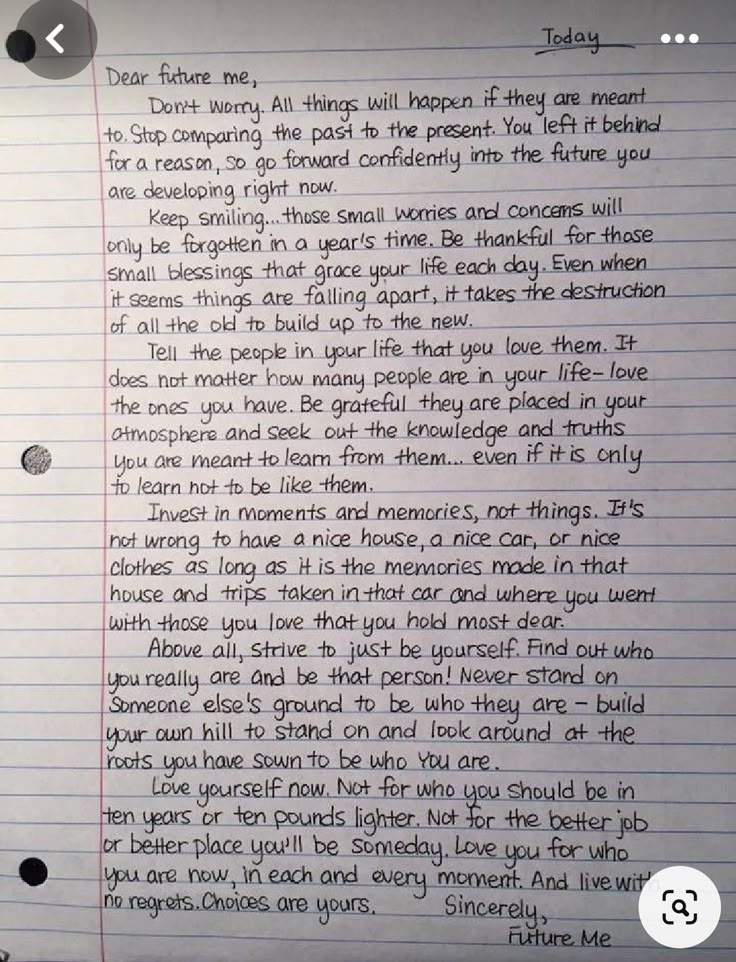 Today
Dear future me,
Don't worry. All things will happen if they are meant
to. Stop comparing the past to the present. You left it behind
for a reason, so go forward confidently into the future you
are developing right now.
Keep smiling...those small worries and concerns will
only be forgotten in a year's time. Be thankful for those
small blessings that grace your life each day. Even when
it seems things are falling apart, it takes the destruction
of all the old to build up to the new.
Tell the people in your life that you love them. It
does not matter how many people are in your life-love
the ones you have. Be grateful they are placed in your
atmosphere and seek out the knowledge and truths
you are meant to learn from them... even if it is only
to learn not to be like them.
Invest in moments and memories, not things. It's
not wrong to have a nice house, a nice car, or nice
clothes as long as it is the memories made in that
house and trips taken in that car and where you went
with those you love that you hold most dear.
Above all, strive to just be yourself. Find out who
you really are and be that person! Never stand on
someone else's ground to be who they are - build
your own hill to stand on and look around at the
roots you have sown to be who You are.
Love yourself now. Not for who you should be in
ten years or ten pounds lighter. Not for the better job
or better place you'll be someday. Love you for who
you are now, in each and every moment. And live with
no regrets. Choices are yours. Sincerely,
Future Me